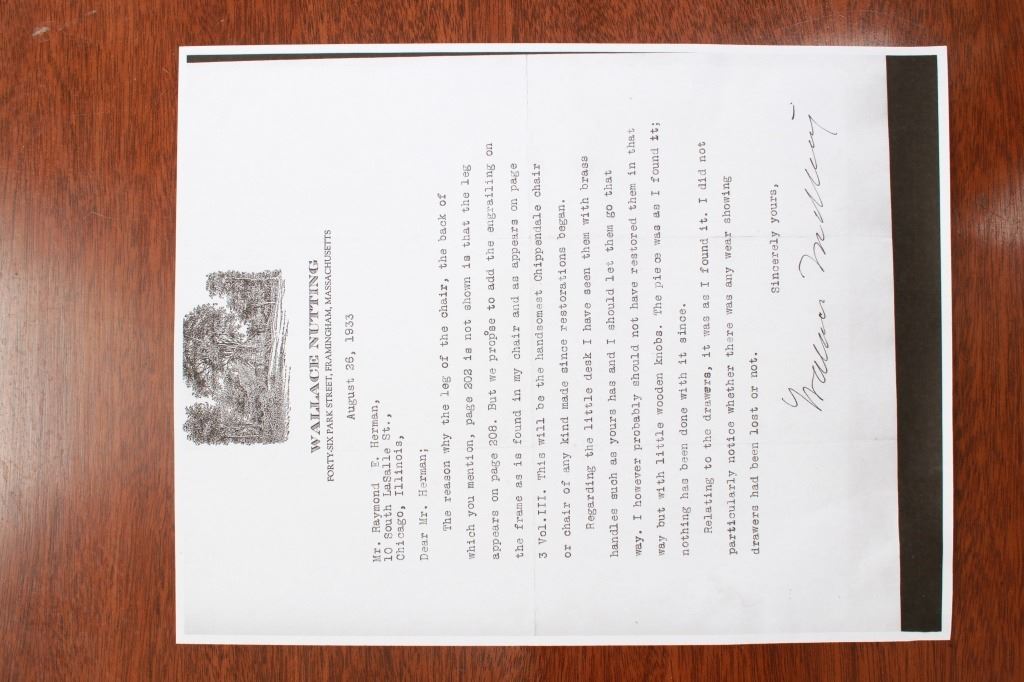 WALLACE NUTTING
FORTY-SIX PARK STREET, FRAMINGHAM, MASSACHUSETTS
August 26, 1933
Mr. Raymond E. Herman,
10 South LaSalle St.,
Chicago, Illinois,
Dear Mr. Herman;
The reason why the leg of the chair, the back of
which you mention, page 202 is not shown is that the leg
appears on page 208. But we propose to add the engrailing on
the frame as is found in my chair and as appears on page
3 Vol.III. This will be the handsomest Chippendale chair
or chair of any kind made since restorations began.
Regarding the little desk I have seen them with brass
handles such as yours has and I should let them go that
way. I however probably should not have restored them in that
way but with little wooden knobs. The piece was as I found it;
nothing has been done with it since.
Relating to the drawers, it was as I found it. I did not
particularly notice whether there was any wear showing
drawers had been lost or not.
Sincerely yours,
Wallace Nutting